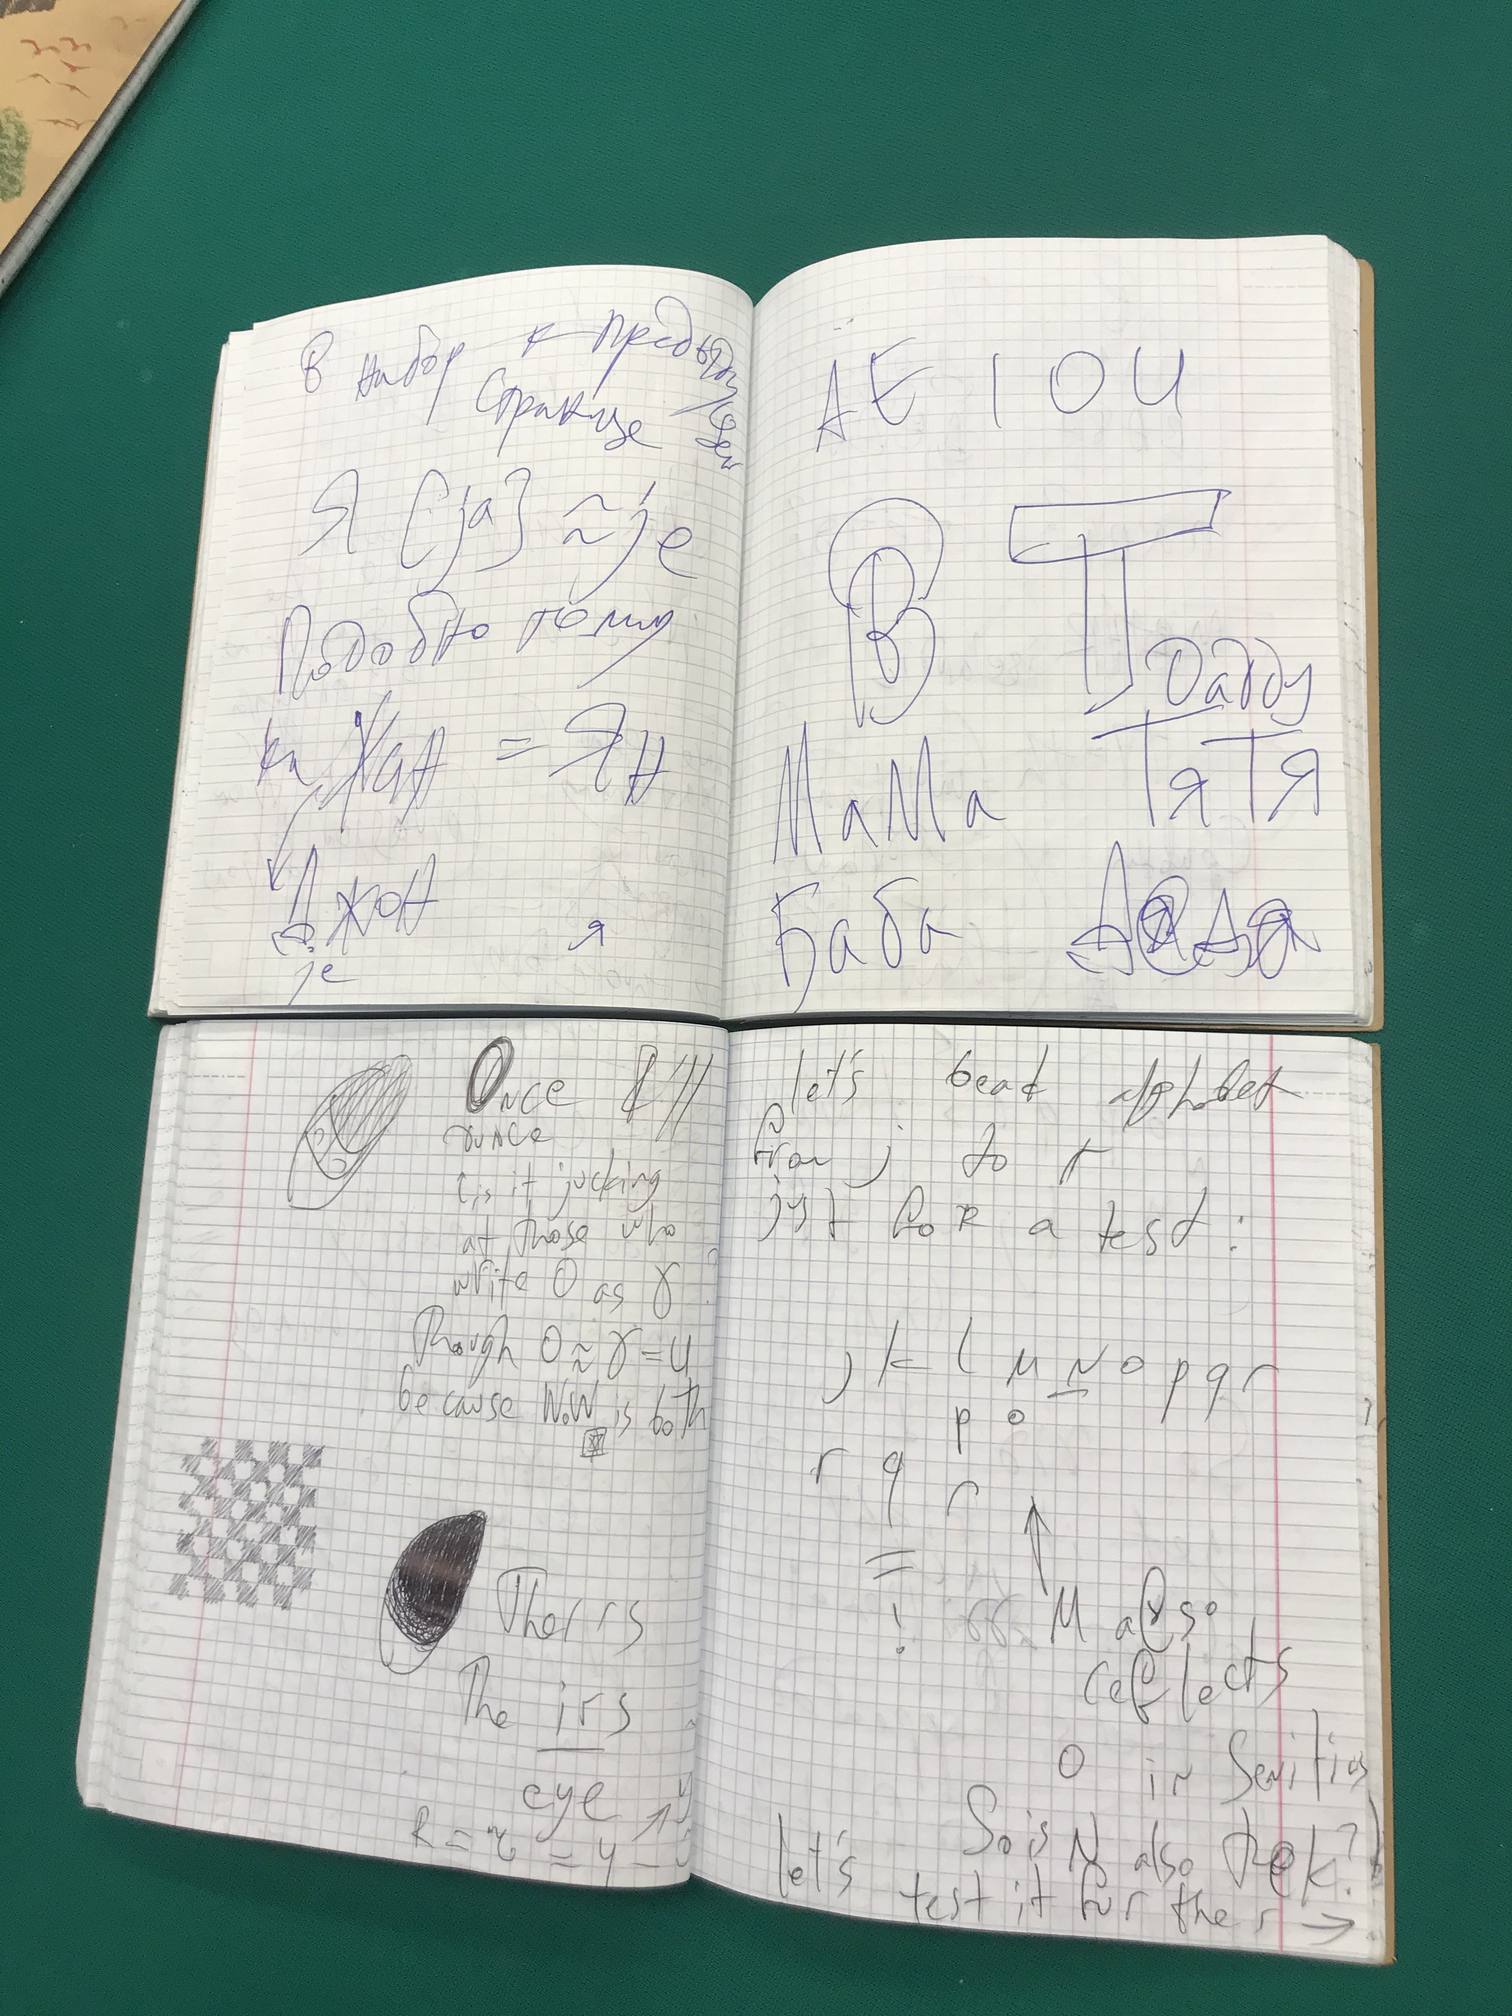 В набор к предыдущей
странице
Я [ja] ≈ je
Подобно тому
как Жан = Ян
Джон
je
я
А Е I O U
B T
Daddy
МаМа ТяТя
Баба
Once
is it jucking
at those who
write O as ɣ
Though O ≈ ɣ = u
because W is both
The irs
eye
R = = y
let's beat alphabet
from j to r
just for a test:
j k l м N o p q r
p o
r q r
=
!
M also
reflects
O in
So is N also
let's test it for the r →